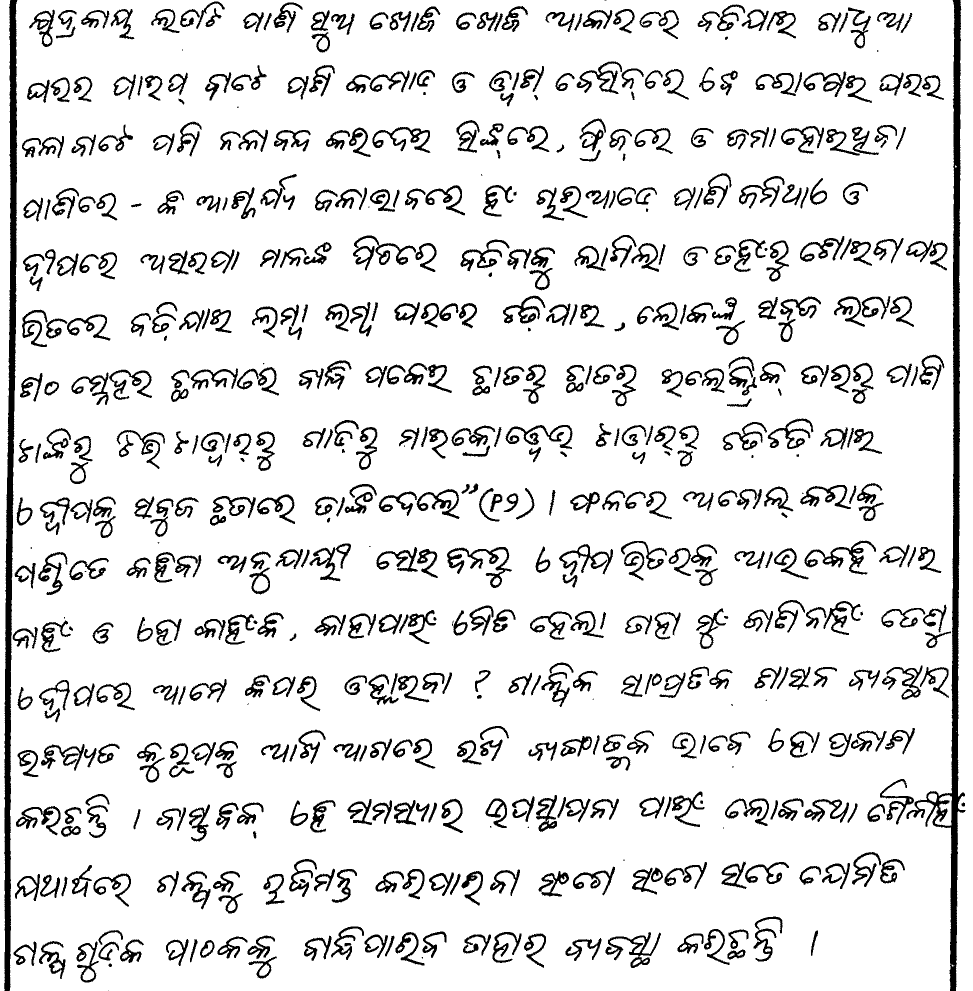 କ୍ଷୁଦ୍ରକାୟ ଲତାଟି ପାଣି ସୁଅ ଖୋଜି ଖୋଜି ଆକାରରେ ବଢ଼ିଯାଇ ଗାଧୁଆ
ଘରର ପାଇପ୍ ବାଟେ ପଶି କମୋଡ଼ ଓ ୱାଶ୍ ବେସିନ୍‌ରେ ଏବଂ ରୋଷେଇ ଘରର
ନଳା ବାଟେ ପଶି ନଳା ବନ୍ଦ କରିଦେଇ ସିଙ୍କ୍‌ରେ, ଫ୍ରିଜ୍‌ରେ ଓ ଜମାହୋଇଥିବା
ପାଣିରେ - କି ଆଶ୍ଚର୍ଯ୍ୟ ଜଳାଭାବରେ ହିଁ ଚାରିଆଡ଼େ ପାଣି ଜମିଥାଏ ଓ
ଦ୍ୱୀପରେ ଅସରପା ମାନଙ୍କ ପିଠିରେ ବଢ଼ିବାକୁ ଲାଗିଲା ଓ ତହିଁରୁ ଶୋଇବା ଘର
ଭିତରେ ବଢ଼ିଯାଇ ଲମ୍ବା ଲମ୍ବା ଘରରେ ଚଢ଼ିଯାଇ, ଲୋକଙ୍କୁ ସବୁଜ ଲତାର
ଶଠ ସ୍ନେହର ଛଳନାରେ ବାନ୍ଧି ପକେଇ ଛାତରୁ ଛାତରୁ ଇଲେକ୍ଟ୍ରିକ୍ ତାରରୁ ପାଣି
ଟାଙ୍କିରୁ ଟିଭି ଟାୱାର୍‌ରୁ ଗାଡ଼ିରୁ ମାଇକ୍ରୋୱେଭ୍ ଟାୱାର୍‌ରୁ ଚଢ଼ିଚଢ଼ି ଯାଇ
ଏ ଦ୍ୱୀପକୁ ସବୁଜ ଛତାରେ ଢାଙ୍କିଦେଲେ” (୮୨) । ଫଳରେ ଅବୋଲ୍ କରାକୁ
ପଣ୍ଡିତେ କହିବା ଅନୁଯାୟୀ ସେଇ ଦିନରୁ ଏ ଦ୍ୱୀପ ଭିତରକୁ ଆଉ କେହି ଯାଇ
ନାହିଁ ଓ ଏହା କାହିଁକି, କାହାପାଇଁ ଏମିତି ହେଲା ତାହା ମୁଁ ଜାଣିନାହିଁ ତେଣୁ
ଏ ଦ୍ୱୀପରେ ଆମେ କିପରି ଓହ୍ଲାଇବା ? ଗାଳ୍ପିକ ସାଂପ୍ରତିକ ଶାସନ ବ୍ୟବସ୍ଥାର
ଭବିଷ୍ୟତ କୁରୂପକୁ ଆଖି ଆଗରେ ରଖି ବ୍ୟଙ୍ଗାତ୍ମକ ଭାବେ ଏହା ପ୍ରକାଶ
କରିଛନ୍ତି । ବାସ୍ତବିକ୍ ଏହି ସମସ୍ୟାର ଉପସ୍ଥାପନା ପାଇଁ ଲୋକକଥା ଶୈଳୀହିଁ
ଯଥାର୍ଥରେ ଗଳ୍ପକୁ ଋଦ୍ଧିମନ୍ତ କରିପାରିବା ସଂଗେ ସଂଗେ ସତେ ଯେମିତି
ଗଳ୍ପ ଗୁଡ଼ିକ ପାଠକକୁ ବାନ୍ଧିପାରିବ ତାହାର ବ୍ୟବସ୍ଥା କରିଛନ୍ତି ।